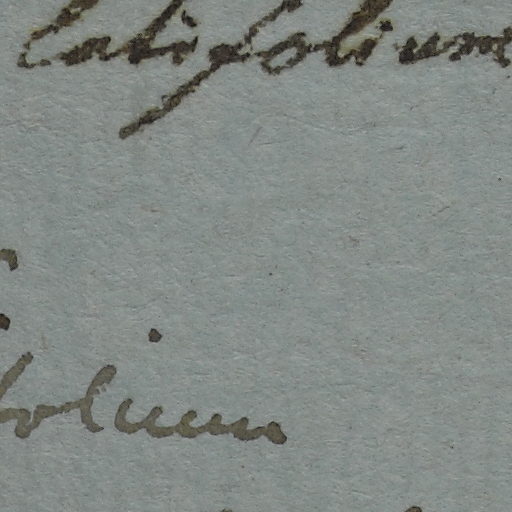 latifolium
folium